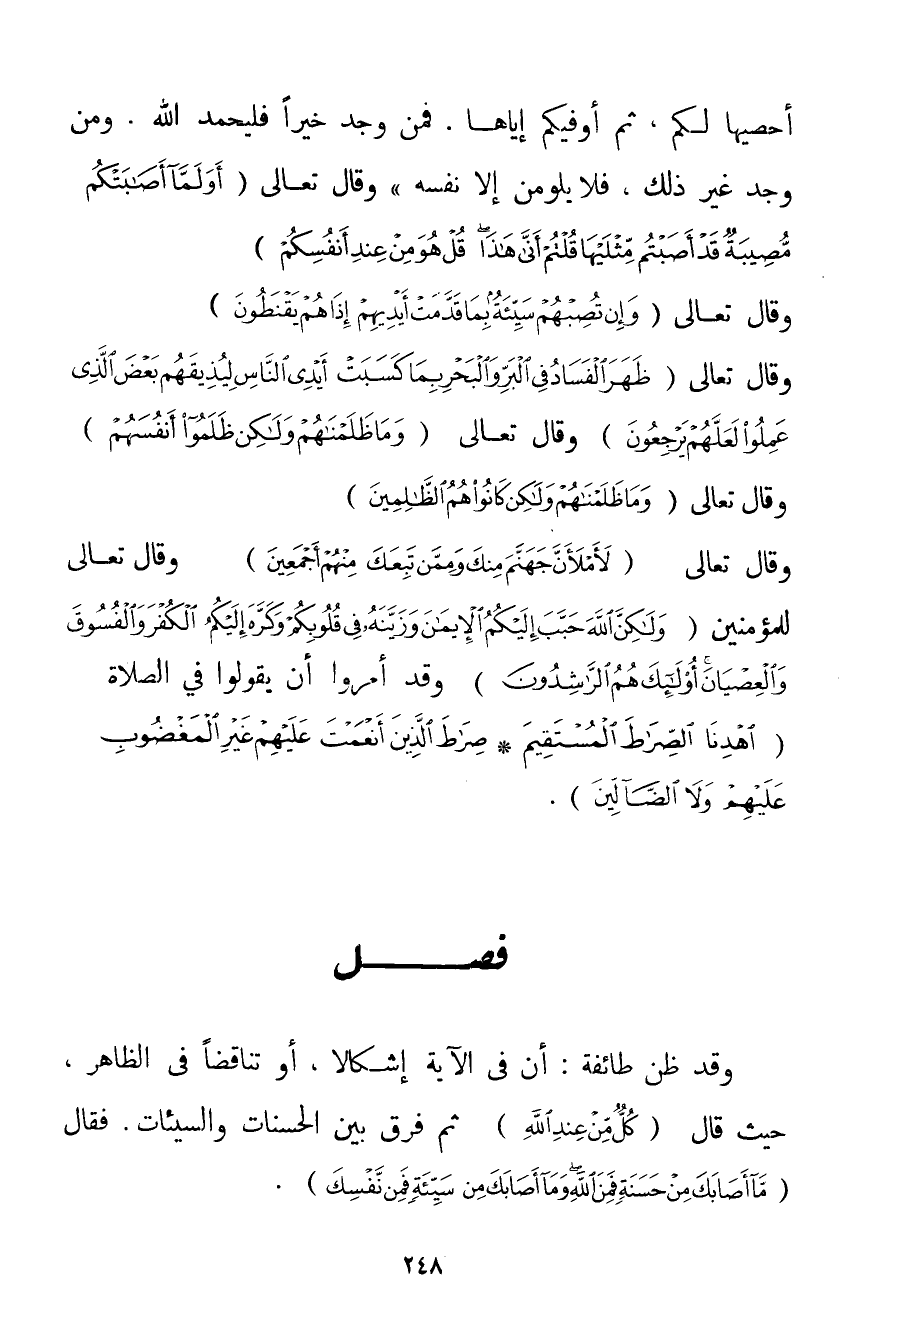 أحصيها لكم ، ثم أوفيكم إياها . فمن وجد خيراً فليحمد الله . ومن
وجد غير ذلك ، فلا يلومن إلا نفسه » وقال تعالى ( أَوَلَمَّآ أَصَٰبَتْكُم
مُّصِيبَةٌ قَدْ أَصَبْتُم مِّثْلَيْهَا قُلْتُمْ أَنَّىٰ هَٰذَا ۖ قُلْ هُوَ مِنْ عِندِ أَنفُسِكُمْ )
وقال تعالى ( وَإِن تُصِبْهُمْ سَيِّئَةٌۢ بِمَا قَدَّمَتْ أَيْدِيهِمْ إِذَا هُمْ يَقْنَطُونَ )
وقال تعالى ( ظَهَرَ ٱلْفَسَادُ فِى ٱلْبَرِّ وَٱلْبَحْرِ بِمَا كَسَبَتْ أَيْدِى ٱلنَّاسِ لِيُذِيقَهُم بَعْضَ ٱلَّذِى
عَمِلُوا۟ لَعَلَّهُمْ يَرْجِعُونَ ) وقال تعالى ( وَمَا ظَلَمْنَٰهُمْ وَلَٰكِن ظَلَمُوٓا۟ أَنفُسَهُمْ )
وقال تعالى ( وَمَا ظَلَمْنَٰهُمْ وَلَٰكِن كَانُوا۟ هُمُ ٱلظَّٰلِمِينَ )
وقال تعالى ( لَأَمْلَأَنَّ جَهَنَّمَ مِنكَ وَمِمَّن تَبِعَكَ مِنْهُمْ أَجْمَعِينَ ) وقال تعالى
للمؤمنين ( وَلَٰكِنَّ ٱللَّهَ حَبَّبَ إِلَيْكُمُ ٱلْإِيمَٰنَ وَزَيَّنَهُۥ فِى قُلُوبِكُمْ وَكَرَّهَ إِلَيْكُمُ ٱلْكُفْرَ وَٱلْفُسُوقَ
وَٱلْعِصْيَانَ ۚ أُو۟لَٰٓئِكَ هُمُ ٱلرَّٰشِدُونَ ) وقد أمروا أن يقولوا في الصلاة
( ٱهْدِنَا ٱلصِّرَٰطَ ٱلْمُسْتَقِيمَ * صِرَٰطَ ٱلَّذِينَ أَنْعَمْتَ عَلَيْهِمْ غَيْرِ ٱلْمَغْضُوبِ
عَلَيْهِمْ وَلَا ٱلضَّآلِّينَ ) .
فصـــــل
وقد ظن طائفة : أن فى الآية إشكالا ، أو تناقضاً فى الظاهر ،
حيث قال ( كُلٌّ مِّنْ عِندِ ٱللَّهِ ) ثم فرق بين الحسنات والسيئات . فقال
( مَّآ أَصَابَكَ مِنْ حَسَنَةٍ فَمِنَ ٱللَّهِ ۖ وَمَآ أَصَابَكَ مِن سَيِّئَةٍ فَمِن نَّفْسِكَ ) .
٢٤٨